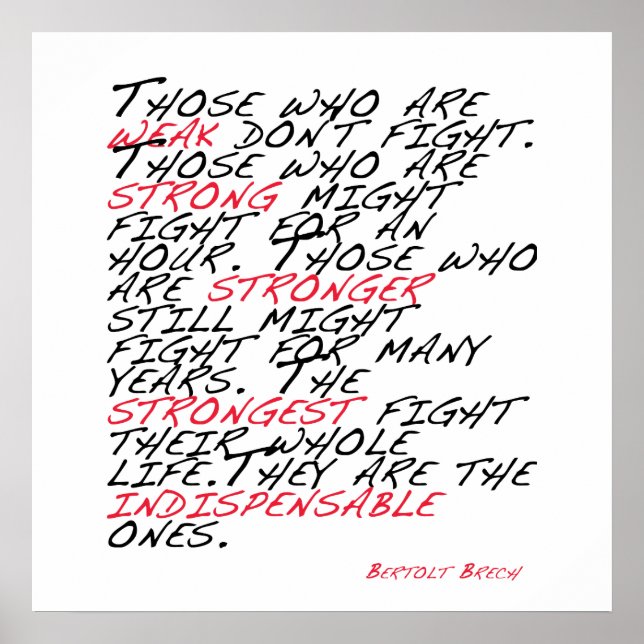 THOSE WHO ARE
WEAK DONT FIGHT.
THOSE WHO ARE
STRONG MIGHT
FIGHT FOR AN
HOUR. THOSE WHO
ARE STRONGER
STILL MIGHT
FIGHT FOR MANY
YEARS. THE
STRONGEST FIGHT
THEIR WHOLE
LIFE.THEY ARE THE
INDISPENSABLE
ONES.
BERTOLT BRECH